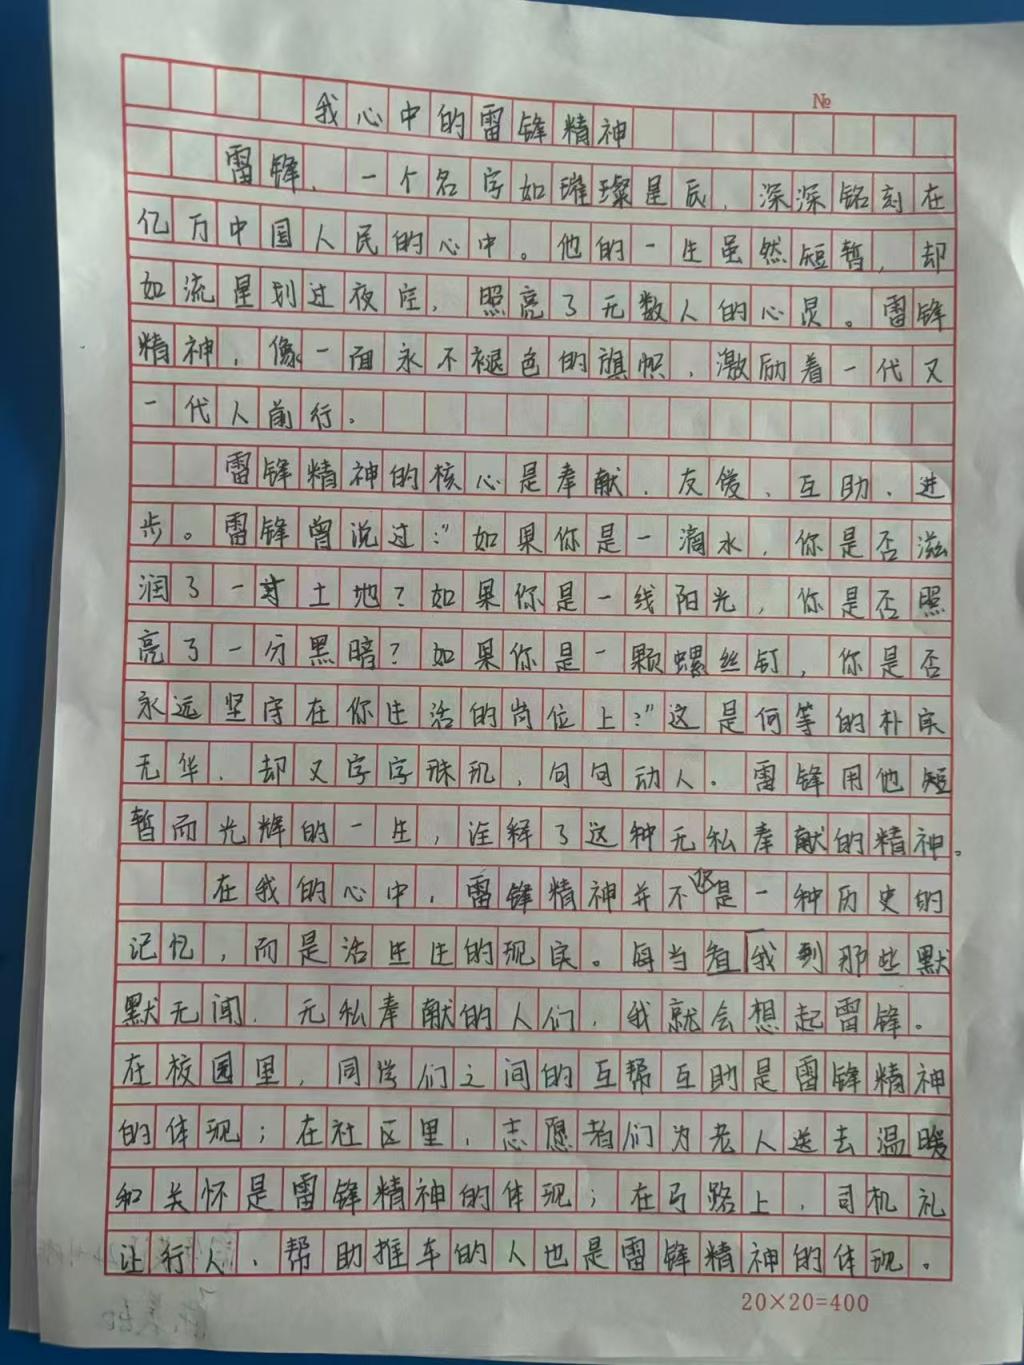 №
我心中的雷锋精神
雷锋，一个名字如璀璨星辰，深深铭刻在
亿万中国人民的心中。他的一生虽然短暂，却
如流星划过夜空，照亮了无数人的心灵。雷锋
精神，像一面永不褪色的旗帜，激励着一代又
一代人前行。
雷锋精神的核心是奉献、友爱、互助、进
步。雷锋曾说过：“如果你是一滴水，你是否滋
润了一寸土地？如果你是一线阳光，你是否照
亮了一分黑暗？如果你是一颗螺丝钉，你是否
永远坚守在你生活的岗位上？”这是何等的朴实
无华，却又字字珠玑，句句动人。雷锋用他短
暂而光辉的一生，诠释了这种无私奉献的精神。
在我的心中，雷锋精神并不仅是一种历史的
记忆，而是活生生的现实。每当看我到那些默
默无闻、无私奉献的人们，我就会想起雷锋。
在校园里，同学们之间的互帮互助是雷锋精神
的体现；在社区里，志愿者们为老人送去温暖
和关怀是雷锋精神的体现；在马路上，司机礼
让行人、帮助推车的人也是雷锋精神的体现。
20×20=400